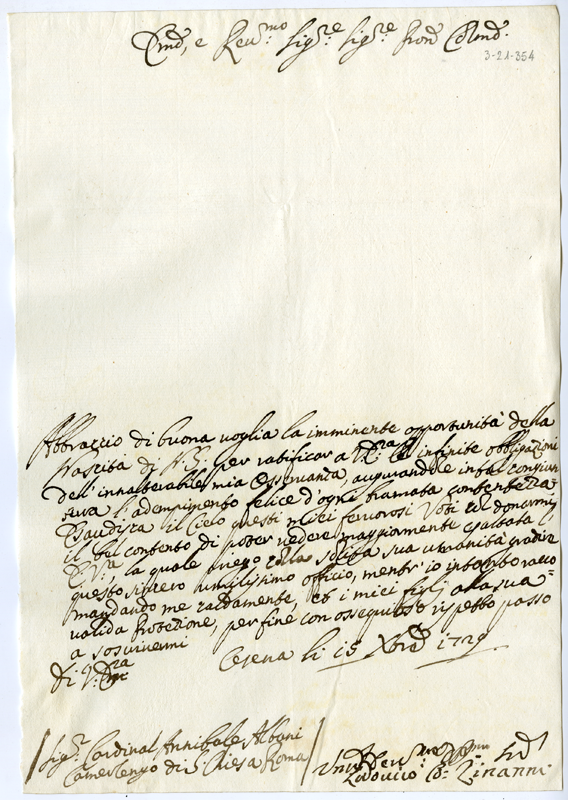 Em.o, e Rev.mo Sig.re Sig.re Pron Colmo
3-21-354
Abbraccio di buona voglia la imminente opportunità della
Nascita di N.S. per ratificar a V.Em.za le infinite obbligazioni
dell'inalterabile mia Osservanza, augurandole in tal congiun
tura l'adempimento felice d'ogni bramata contentezza
Esaudisca il Cielo questi miei fervorosi Voti col donarmi
il bel contento di poter vedere maggiormente esaltata l'
E.V.ra, la quale prego colla solita sua umanità gradir
questo sincero umilissimo officio, mentr'io intanto racco
mandando me caldamente, et i miei figlj alla sua
valida Protezione, per fine con ossequioso rispetto passo
a soscrivermi
Di V.Em.za
Cesena li 15 Xbre 1729
Sig.r Cardinal Annibale Albani
Camerlengo di S. Chiesa Roma
Lodovico Co: Zinanni